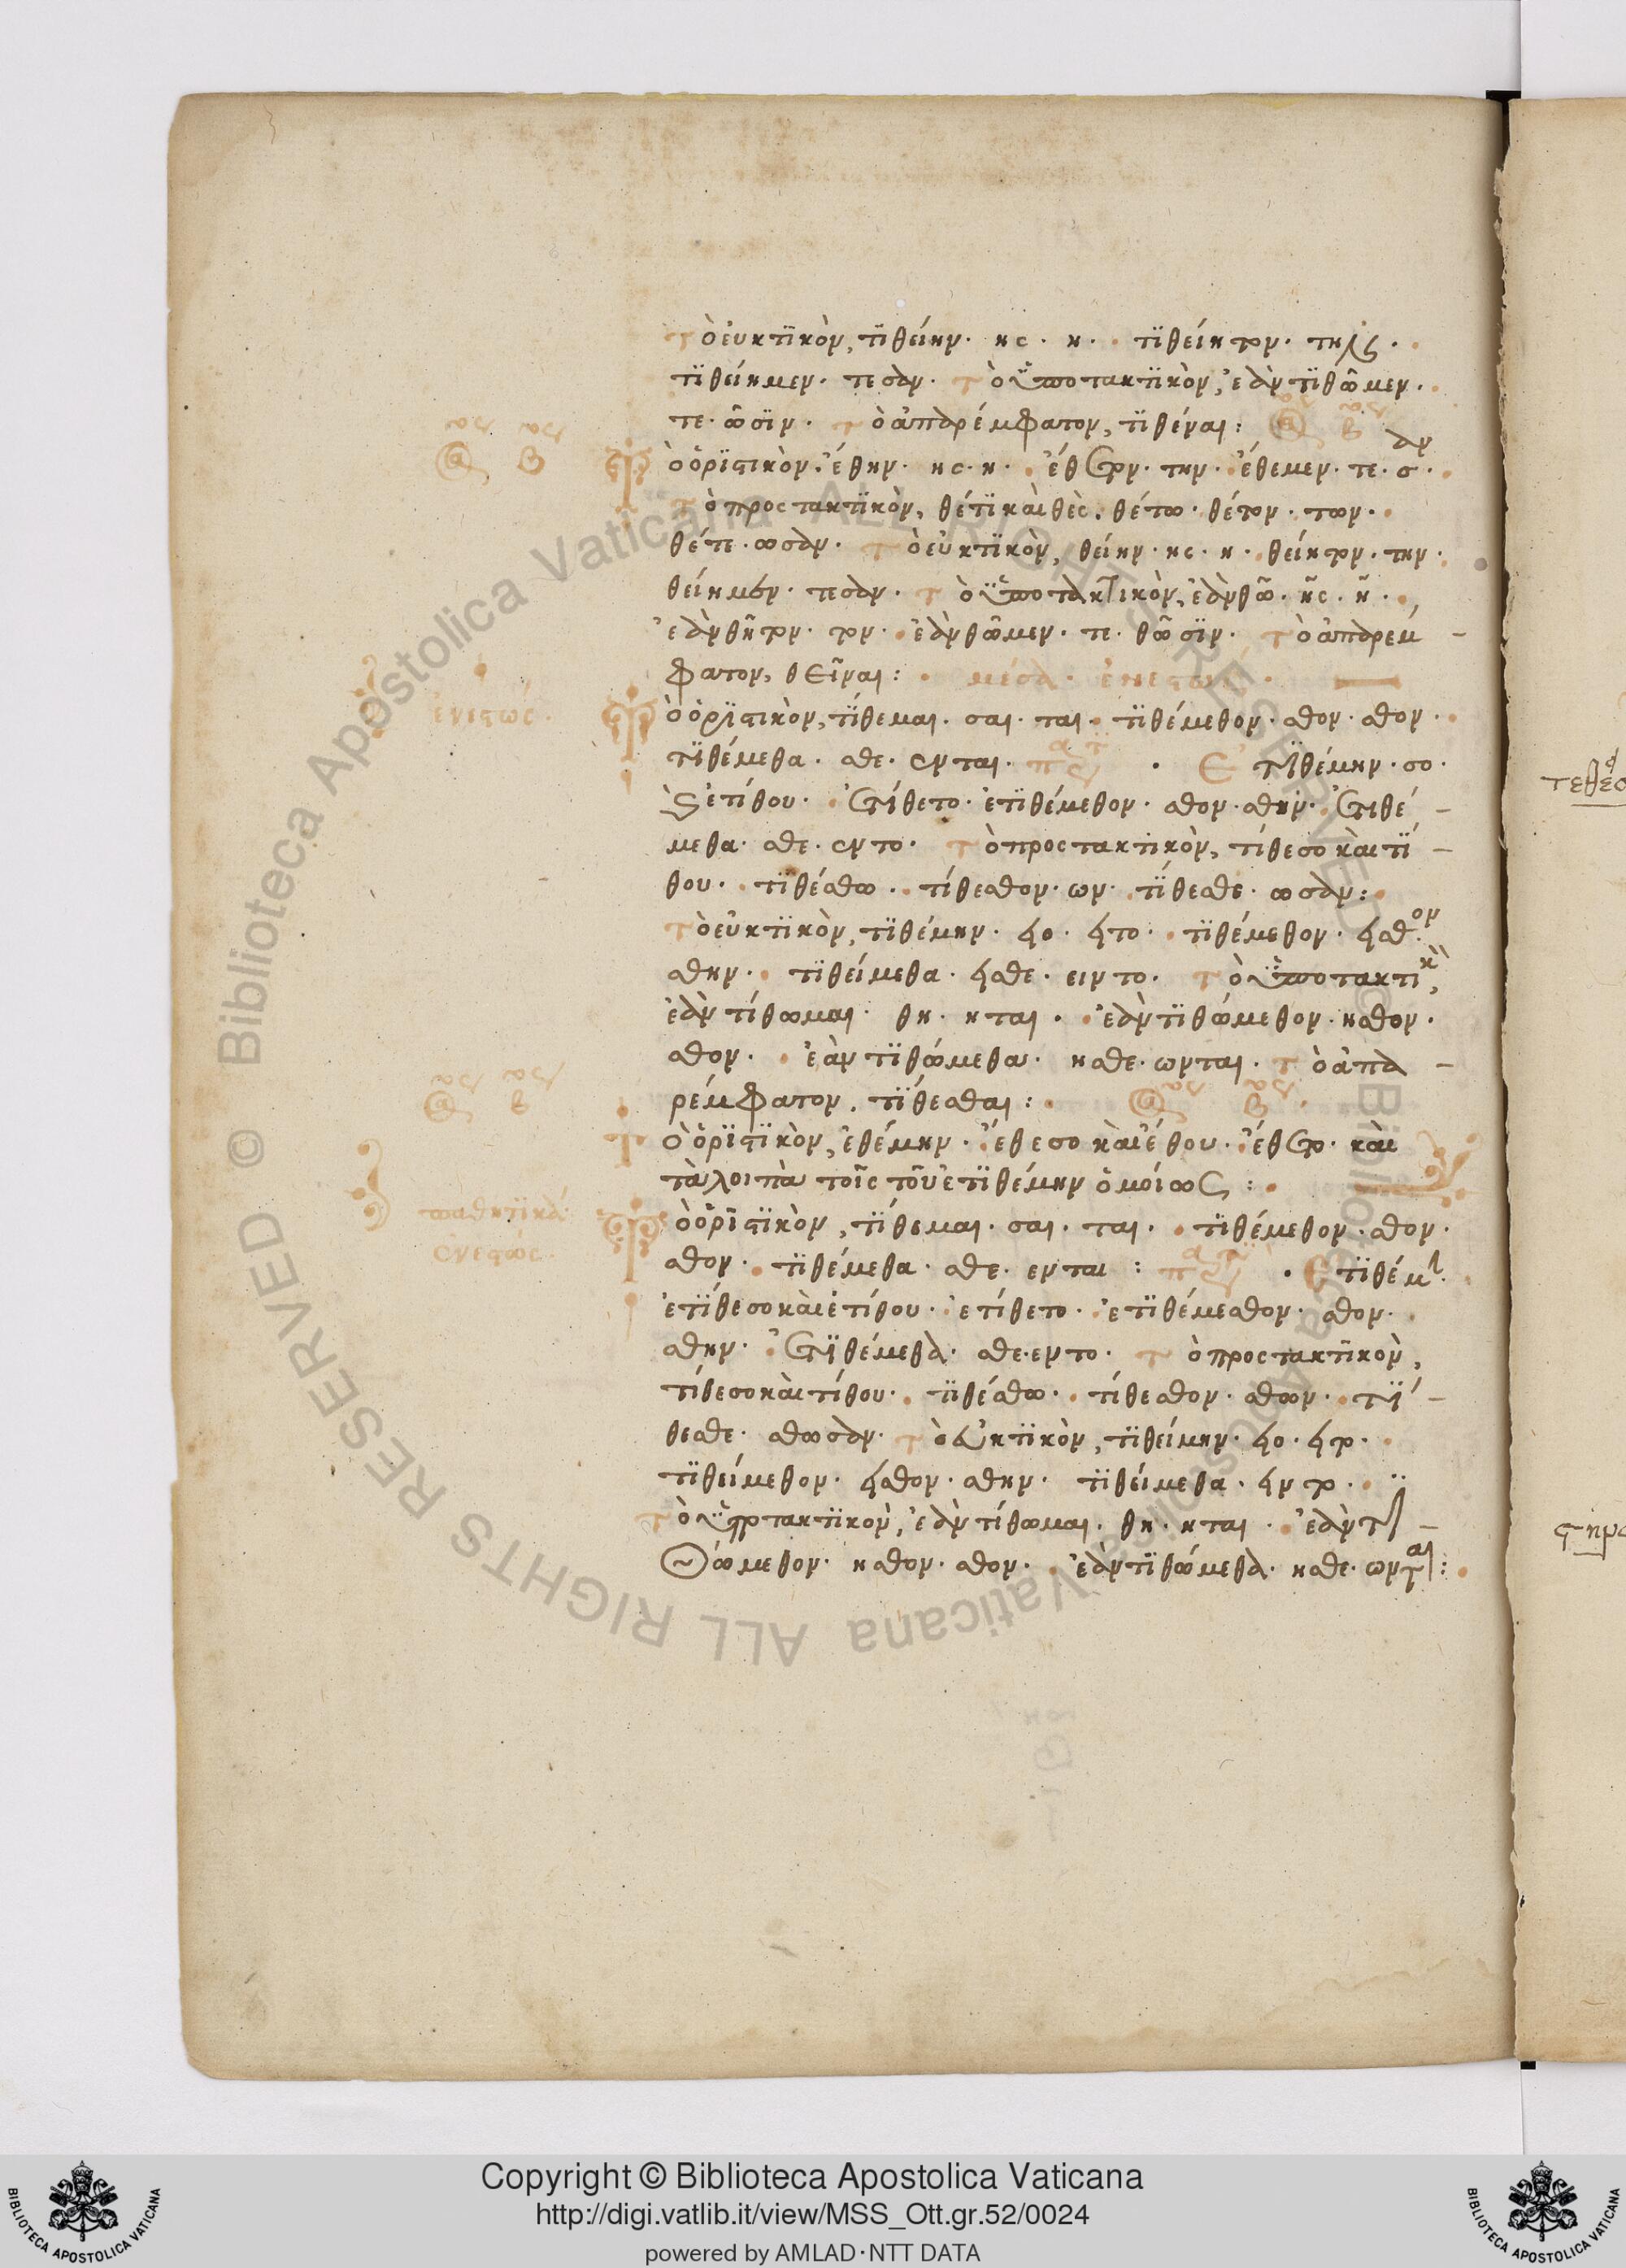 τὸ εὐκτϊκὸν, τϊθείην· ης· η· τϊθείητον· την·
τϊθείημεν· τε σαν· τὸ ὑποτακτϊκὸν, ἐὰν τϊθῶμεν·
τε· ῶσϊν· τὸ ἀπαρέμφατον, τϊθέναι:
τὸ ὁρϊστικὸν· ἔθην· ης· η· ἔθετον· την· ἔθεμεν· τε· σαν·
τὸ προστακτϊκὸν, θέτϊ καὶ θὲς. θέτω· θέτον· των·
θέτε· ωσαν· τὸ εὐκτϊκὸν, θείην· ης· η· θείητον· την·
θείημεν· τεσαν· τὸ ὑποτακτικὸν, ἐὰν θῶ· ῆς· ῆ·
ἐὰν θῆτον· τον· ἐὰν θῶμεν· τε· θῶσϊν· τὸ ἀπαρεμ-
φατον, θεῖναι: μέσα· ἐνεστώς·
ἐνεστώς·
τὸ ὁρϊστικὸν, τϊθεμαι· σαι· ται· τϊθέμεθον· σθον· σθον·
τϊθέμεθα· σθε· ενται· ἐτϊθέμην· σο·
ἐτίθου· ἐτίθετο· ἐτϊθέμεθον· σθον· σθην· ἐτιθέ-
μεθα· σθε· εντο· τὸ προστακτικὸν, τίθεσο καὶ τί-
θου· τϊθέσθω· τίθεσθον· ων· τϊθεσθε· ωσαν:
τὸ εὐκτϊκὸν, τϊθέμην· ειο· ειτο· τϊθέμεθον· εισθον·
σθην· τϊθείμεθα· εισθε· ειντο· τὸ ὑποτακτικὸν,
ἐὰν τίθωμαι· θη· ηται· ἐὰν τϊθώμεθον· ησθον·
σθον· ἐὰν τϊθώμεθα· ησθε· ωνται· τὸ ἀπα-
ρέμφατον, τϊθεσθαι:
τὸ ὁρϊστϊκὸν, ἐθέμην· ἔθεσο καὶ ἔθου· ἔθετο· καὶ
τὰ λοιπὰ τοῖς τοῦ ἐτϊθέμην ὁμοίως:
παθητϊκά·
ἐνεστώς·
τὸ ὁρϊστϊκὸν, τϊθεμαι· σαι· ται· τϊθέμεθον· σθον·
σθον· τϊθέμεθα· σθε· ενται: ἐτϊθέμην·
ἐτϊθεσο καὶ ἐτίθου· ἐτίθετο· ἐτϊθέμεσθον· σθον·
σθην· ἐτϊθέμεθα· σθε· εντο· τὸ προστακτϊκὸν,
τίθεσο καὶ τίθου· τϊθέσθω· τίθεσθον· σθων· τϊ-
θεσθε· σθωσαν· τὸ εὐκτϊκὸν, τϊθείμην· ειο· ειτο·
τϊθείμεθον· εισθον· σθην· τϊθείμεθα· ειντο·
τὸ ὑποτακτϊκὸν, ἐὰν τίθωμαι· θη· ηται· ἐὰν τϊ-
θώμεθον· ησθον· σθον· ἐὰν τϊθώμεθα· ησθε· ωνται:
Copyright © Biblioteca Apostolica Vaticana
http://digi.vatlib.it/view/MSS_Ott.gr.52/0024
powered by AMLAD·NTT DATA
BIBLIOTECA APOSTOLICA VATICANA
BIBLIOTECA APOSTOLICA VATICANA
© Biblioteca Apostolica Vaticana ALL RIGHTS RESERVED © Biblioteca Apostolica Vaticana ALL RIGHTS RESERVED